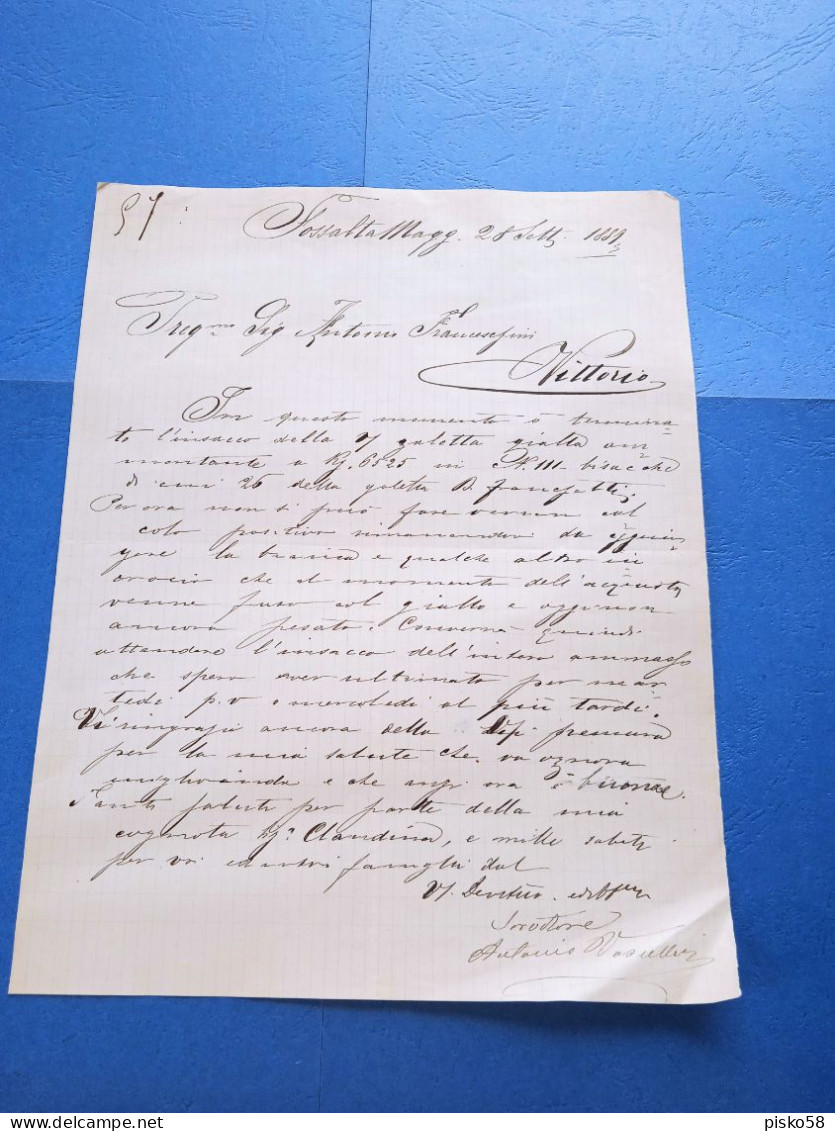 Fossalta Magg. 28 Sett.
Preg.mo Sig Antonio Franceschini
Vittorio
In questo momento è termina
to l'insacco della galetta gialla am
montante a Kg. 6525 in N. 111 bisacche
di cui 26 della galetta
Per ora non si può fare verun cal
colo positivo rimanendovi da aggiun
gere la bianca e qualche altro in
crocio che al momento dell'acquisto
venne fuso col giallo e oggi non
ancora pesato. Converrà quindi
attendere l'insacco dell'intero ammasso
che spero aver ultimato per mar
tedi p.v o mercoledi al più tardi.
Vi ringrazio ancora della premura
per la mia salute che va ognora
migliorando e che anzi ora è buona.
Tanti saluti per parte della mia
cognata Claudina, e mille saluti
per voi e famiglia dal
V.
Antonio
pisko58